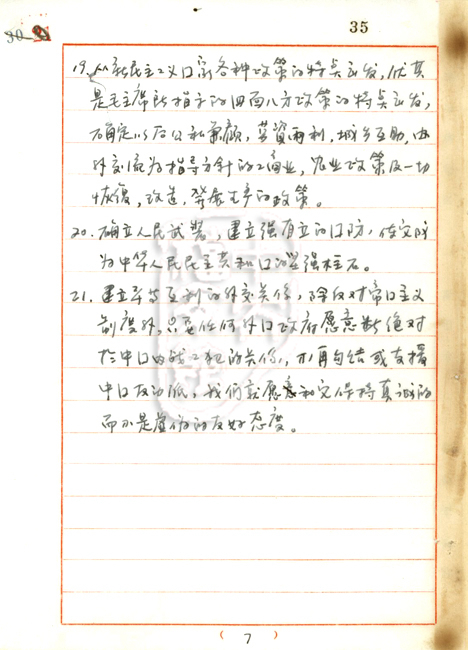 30
35
19. 从新民主主义囗家各种政策的特点出发,尤其
是毛主席所指示的四面八方政策的特点出发,
确定以后公私兼顾,劳资两利,城乡互助,内
外交流为指导方针的工商业,农业政策及一切
恢复,改造,发展生产的政策。
20. 确立人民武装,建立强有立的囗防,使它成
为中华人民民主共和囗的坚强柱石。
21. 建立平等互利的外交关係,除反对帝囗主义
制度外,只要任何外囗政府愿意断绝对
于中囗的战犯的关係,不再勾结或支援
中囗反动派,我们就愿意和它保持真诚的
而不是虚伪的友好态度。
( 7 )